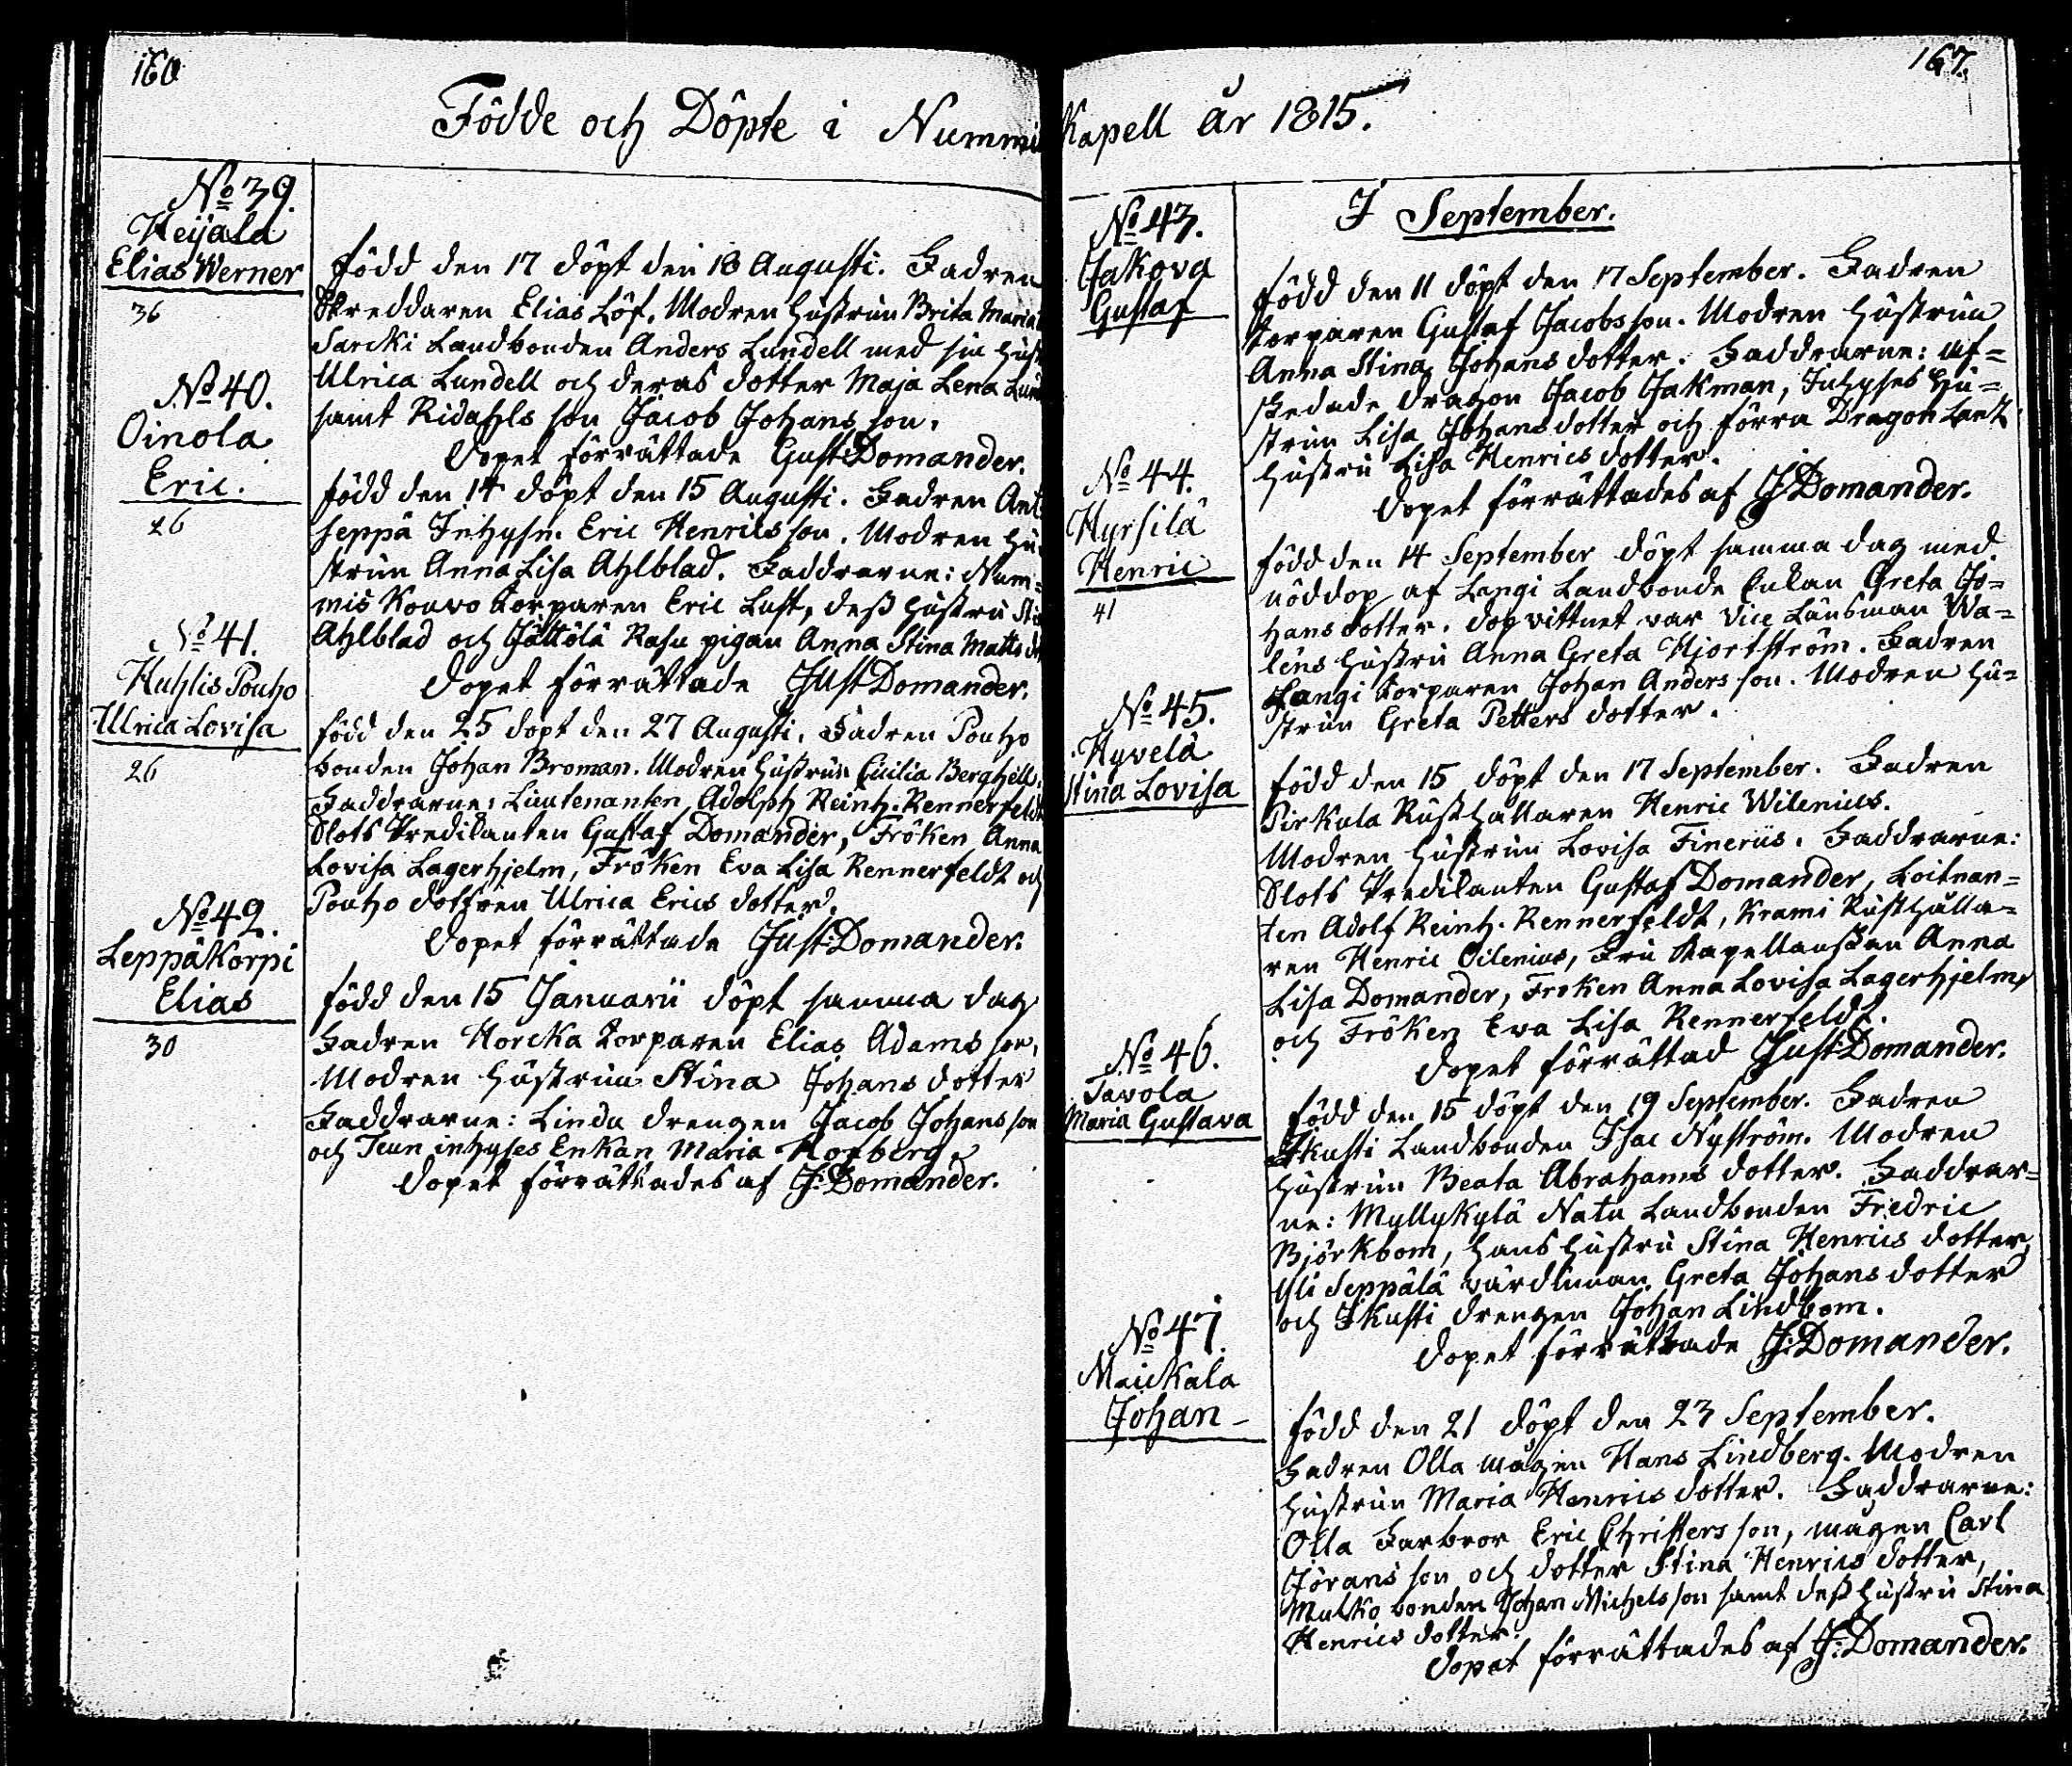 160
Födde och Döpte i Nummi
No 39.
Heijala
Elias Werner
36
född den 17 döpt den 18 Augusti. Fadren
Skreddaren Elias Löf. Modren hustrun Brita Maria
Sarcki Landbonden Anders Lundell med sin hust
Ulrica Lundell och deras dotter Maja Lena Lun
samt Ridahls son Jacob Johans son.
Dopet förrättade Gust: Domander.
No 40.
Oinola
Eric.
26
född den 14 döpt den 15 Augusti. Fadren Ant
seppä Inhysn. Eric Henrics son. Modren hu-
strun Anna Lisa Ahlblad. Faddrarne: Num-
mis Kouvo Torparen Eric Lust, dess hustru Sti
Ahlblad och Jättölä Rasu pigan Anna Stina Matts d
Dopet förrättade Gust Domander.
No 41.
Huhlis Pouho
Ulrica Lovisa
26
född den 25 döpt den 27 Augusti. Fadren Pouho
bonden Johan Broman. Modren hustrun Cicilia Berghell.
Faddrarne: Lieutenanten Adolph Reinh. Rennerfeldt
Slots Predikanten Gustaf Domander, Fröken Anna
Lovisa Lagerhjelm, Fröken Eva Lisa Rennerfeldt och
Pouho dottren Ulrica Erics dotter.
Dopet förrättade Gust: Domander.
No 42.
Leppäkorpi
Elias
30
född den 15 Januarii döpt samma dag
Fadren Horcka Torparen Elias Adams son,
Modren hustrun Stina Johans dotter
Faddrarne: Linda drengen Jacob Johans son
och inhyses Enkan Maria Kofberg.
Dopet förrättades af G: Domander.
167.
Kapell år 1815.
I September.
No 43.
Jakova
Gustaf
född den 11 döpt den 17 September. Fadren
Torparen Gustaf Jacobs son. Modren hustrun
Anna Stina Johans dotter. Faddrarne: Af-
skedade Dragon Jacob Jakman, Inhyses Hu-
strun Lisa Johans dotter och förra Dragon
hustru Lisa Henrics dotter.
Dopet förrättades af G Domander.
No 44.
Hyrsilä
Henric
41
född den 14 September döpt samma dag med
nöddop af Langi Landbonde Enkan Greta Jo-
hans dotter. Dop vittnet var Vice Länsman Wa-
lens hustru Anna Greta Hjortström. Fadren
Langi Torparen Johan Anders son. Modren hu-
strun Greta Petters dotter.
No 45.
Hyvelä
Stina Lovisa
född den 15 döpt den 17 September. Fadren
Pirkula Rusthallaren Henric Wilenius.
Modren hustrun Lovisa Finerus. Faddrarne:
Slots Predikanten Gustaf Domander, Loitnan-
ten Adolf Reinh. Rennerfeldt, Krami Rusthålla-
ren Henric Oilenius, Fru Kapellanskan Anna
Lisa Domander, Froken Anna Lovisa Lagerhjelm,
och Fröken Eva Lisa Rennerfeldt.
Dopet förrättad Gust: Domander.
No 46.
Tavola
Maria Gustava
född den 15 döpt den 19 September. Fadren
Ikusti Landbonden Isac Nyström. Modren
hustrun Beata Abrahams dotter. Faddrar-
ne: Myllykylä Natu Landbonden Fredric
Björkbom, hans hustru Stina Henrics dotter,
Yli Seppälä värdinnan Greta Johans dotter
och Ikusti drengen Johan Lindbom.
Dopet förrättade G: Domander.
No 47.
Maickala
Johan -
född den 21 döpt den 23 September.
Fadren Olla mågen Hans Lindberg. Modren
hustrun Maria Henrics dotter. Faddrarne:
Olla Farbror Eric Christers son, mågen Carl
Görans son och dotter Stina Henrics dotter,
Mulko bonden Johan Michels son samt dess hustru Stina
Henrics dotter.
Dopet förrättades af G: Domander.